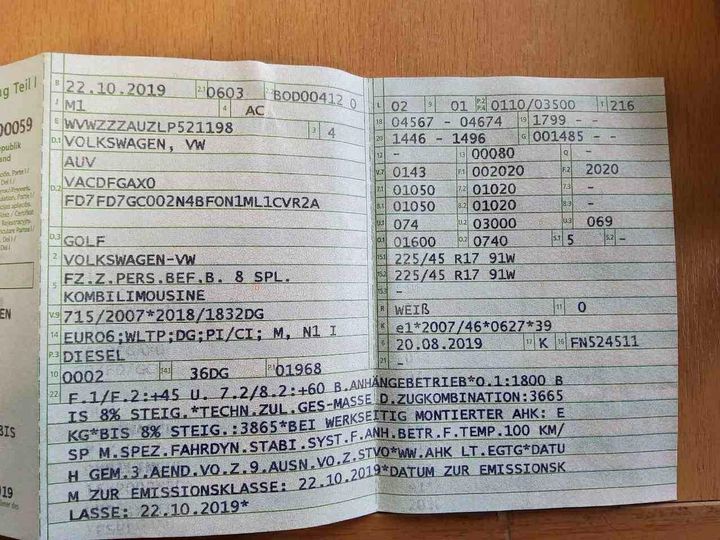 ng Teil I
00059
B 22.10.2019 2.1 0603 2.2 BOD00412 0
J M1 4 AC
E WVWZZZAUZLP521198 3 4
D.1 VOLKSWAGEN, VW
AUV
D.2 VACDFGAX0
FD7FD7GC002N4BFON1ML1CVR2A
D.3 GOLF
2 VOLKSWAGEN-VW
5 FZ.Z.PERS.BEF.B. 8 SPL.
KOMBILIMOUSINE
V.9 715/2007*2018/1832DG
14 EURO6;WLTP;DG;PI/CI; M, N1 I
P.3 DIESEL
10 0002 14.1 36DG P.1 01968
L 02 9 01 P.2 P.4 0110/03500 T 216
18 04567 - 04674 19 1799 - -
20 1446 - 1496 G 001485 - -
12 - 13 00080 Q -
V.7 0143 F.1 002020 F.2 2020
7.1 01050 7.2 01020 7.3 -
8.1 01050 8.2 01020 8.3 -
U.1 074 U.2 03000 U.3 069
O.1 01600 O.2 0740 S.1 5 S.2 -
15.1 225/45 R17 91W
15.2 225/45 R17 91W
15.3 -
R WEIß 11 0
K e1*2007/46*0627*39
6 20.08.2019 17 K 16 FN524511
21 -
22 F.1/F.2:+45 U. 7.2/8.2:+60 B.ANHÄNGEBETRIEB*O.1:1800 B
IS 8% STEIG.*TECHN.ZUL.GES-MASSE D.ZUGKOMBINATION:3665
KG*BIS 8% STEIG.:3865*BEI WERKSEITIG MONTIERTER AHK: E
SP M.SPEZ.FAHRDYN.STABI.SYST.F.ANH.BETR.F.TEMP.100 KM/
H GEM.3.AEND.VO.Z.9.AUSN.VO.Z.STVO*WW.AHK LT.EGTG*DATU
M ZUR EMISSIONSKLASSE: 22.10.2019*DATUM ZUR EMISSIONSK
LASSE: 22.10.2019*